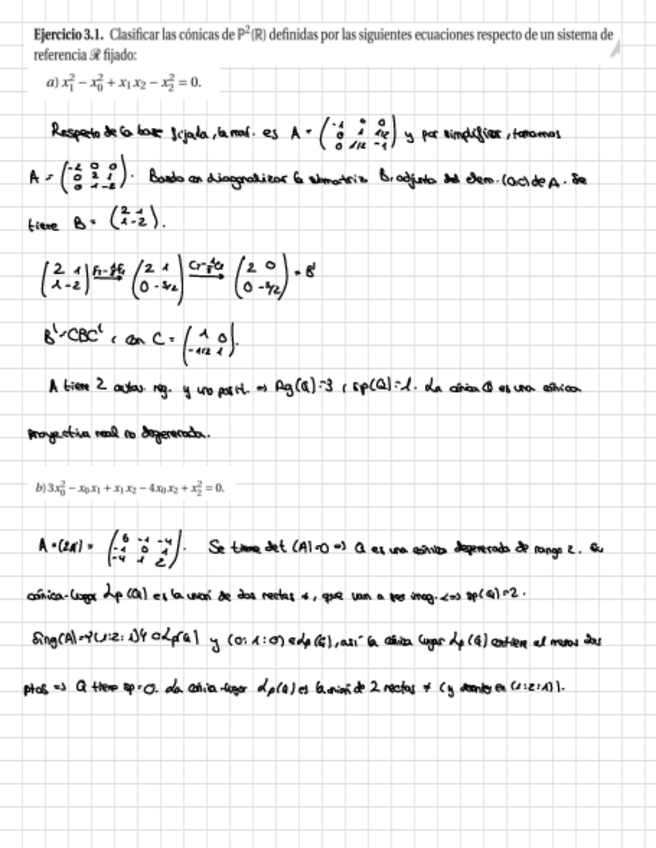 Ejercicio 3.1. Clasificar las cónicas de P²(R) definidas por las siguientes ecuaciones respecto de un sistema de
referencia ℛ fijado:
a) x₁² − x₀² + x₁x₂ − x₂² = 0.
Respecto de la base fijada, la mat. es A = (-1 0 0; 0 1 1/2; 0 1/2 -1) y por simplificar, tomamos
A = (-2 0 0; 0 2 1; 0 1 -2). Basta con diagonalizar la submatriz B, adjunta del elem. (0,0) de A. Se
tiene B = (2 1; 1 -2).
(2 1; 1 -2) → (2 1; 0 -5/2) → (2 0; 0 -5/2) = B'
B' = CBCᵗ, con C = (1 0; -1/2 1).
A tiene 2 autov. neg. y uno posit. ⇒ Rg(Q)=3, sp(Q)=1. La cónica Q es una cónica
proyectiva real no degenerada.
b) 3x₀² − x₀x₁ + x₁x₂ − 4x₀x₂ + x₂² = 0.
A = (2A) = (6 -1 -4; -1 0 1; -4 1 2). Se tiene det(A)=0 ⇒ Q es una cónica degenerada de rango 2. La
cónica-lugar Lp(Q) es la unión de dos rectas ≠, que van a ser imag. ⇔ sp(Q)=2.
Sing(A)={(1:2:1)} ⊂ Lp(Q) y (0:1:0) ∈ Lp(Q), así la cónica lugar Lp(Q) contiene al menos dos
ptos ⇒ Q tiene sp=0. La cónica-lugar Lp(Q) es la unión de 2 rectas ≠ (y en (1:2:1)).